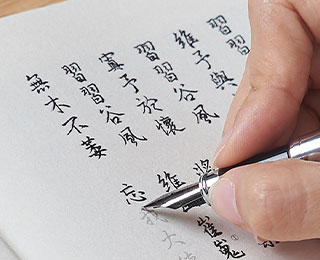 習習
維予與
習習谷風
寘予於懷
習習谷風
無木不萎
將
維山崔嵬
忘我大